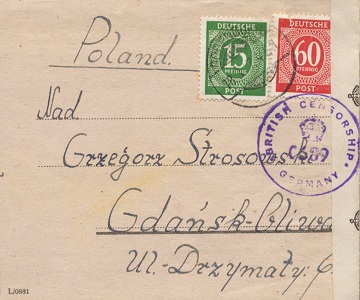 Poland.
DEUTSCHE
15
PFENNIG
POST
DEUTSCHE
60
PFENNIG
POST
Nad.
BRITISH CENSORSHIP.
GERMANY
Grzegorz
Gdańsk-Oliwa
Ul.-Drzymały. 6
L/0881